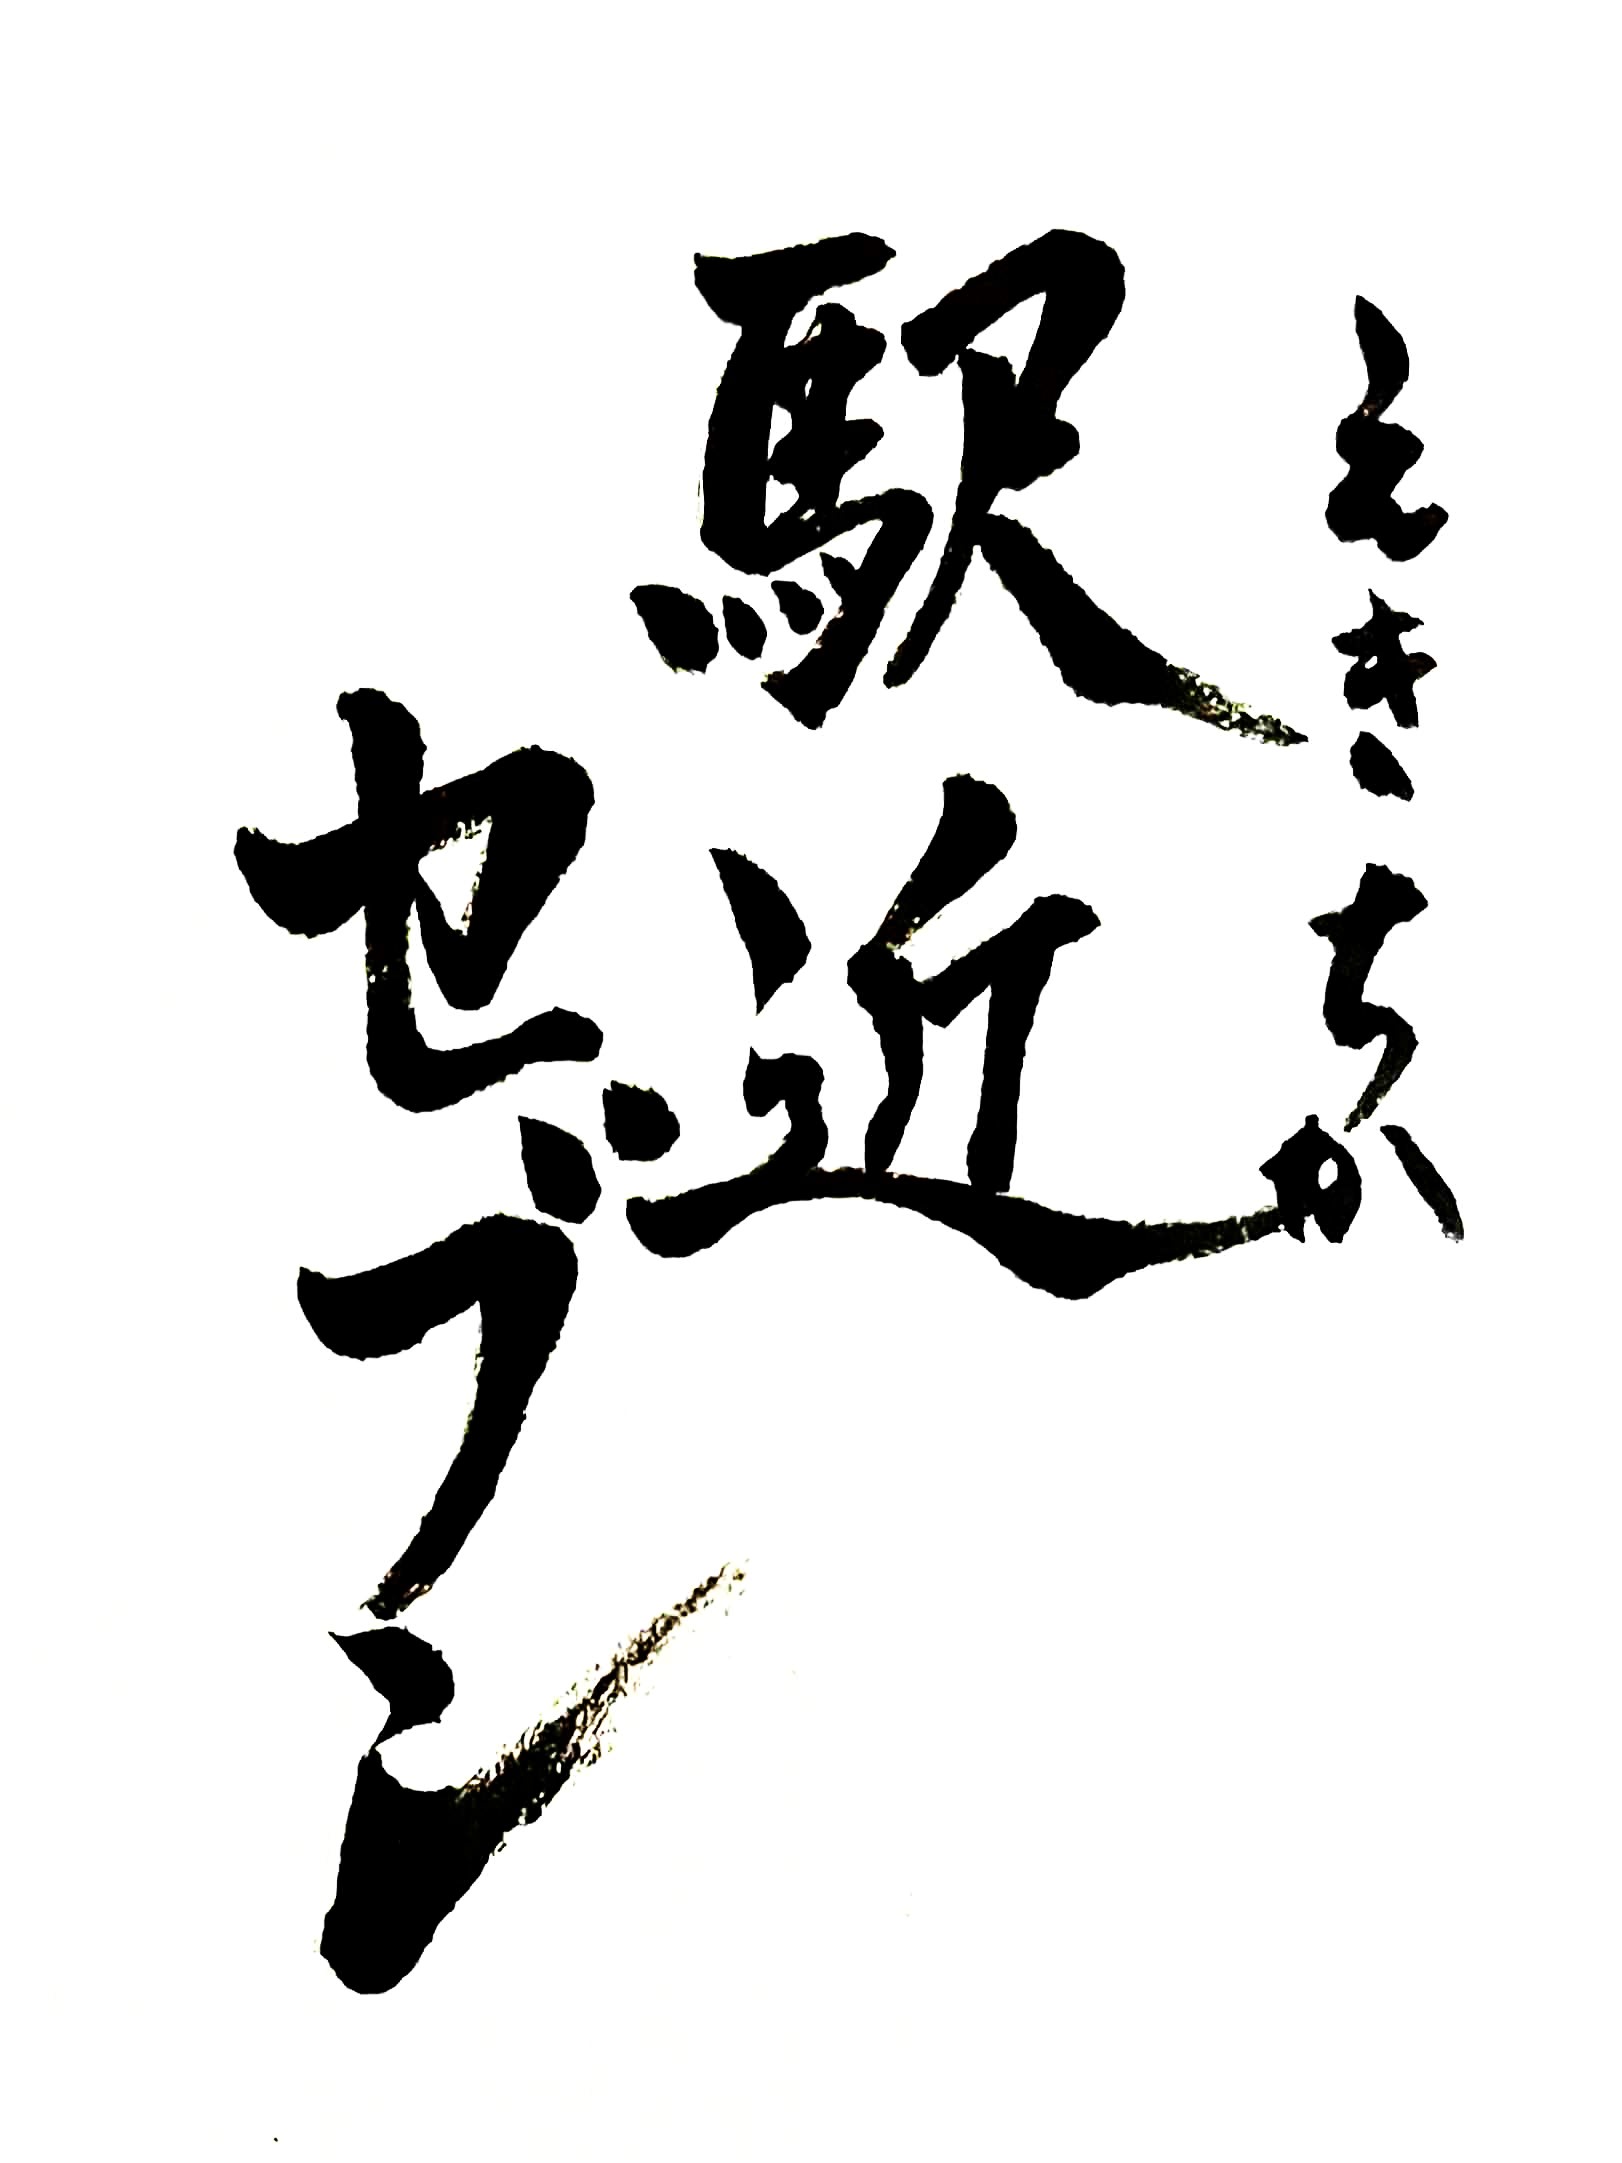 えきちか
駅近
セブン